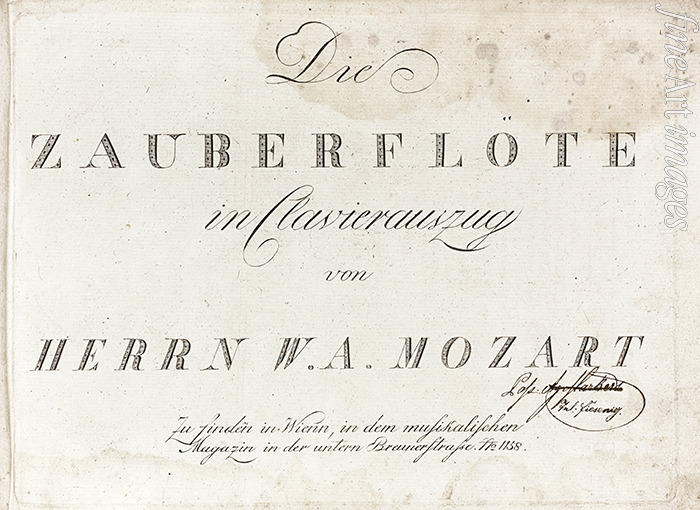 Die
ZAUBERFLÖTE
in Clavierauszug
von
HERRN W. A. MOZART
Poss.
Zu finden in Wienn, in dem musikalischen
Magazin in der untern Breunerstrasse. No 1158.
fineArtimages